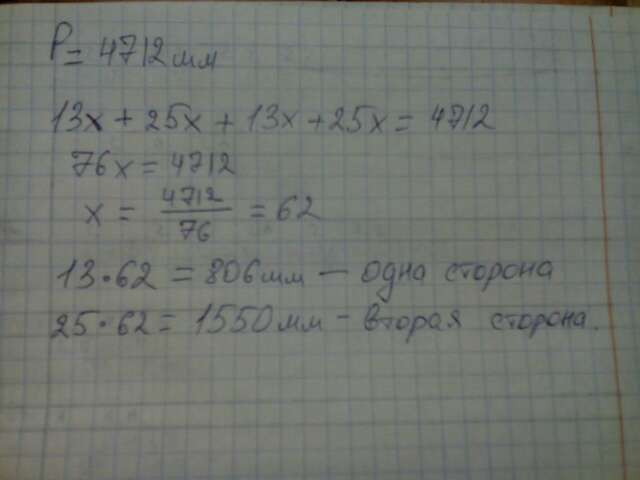 P = 4712 мм
13x + 25x + 13x + 25x = 4712
76x = 4712
x = 4712/76 = 62
13·62 = 806мм — одна сторона
25·62 = 1550мм - вторая сторона.